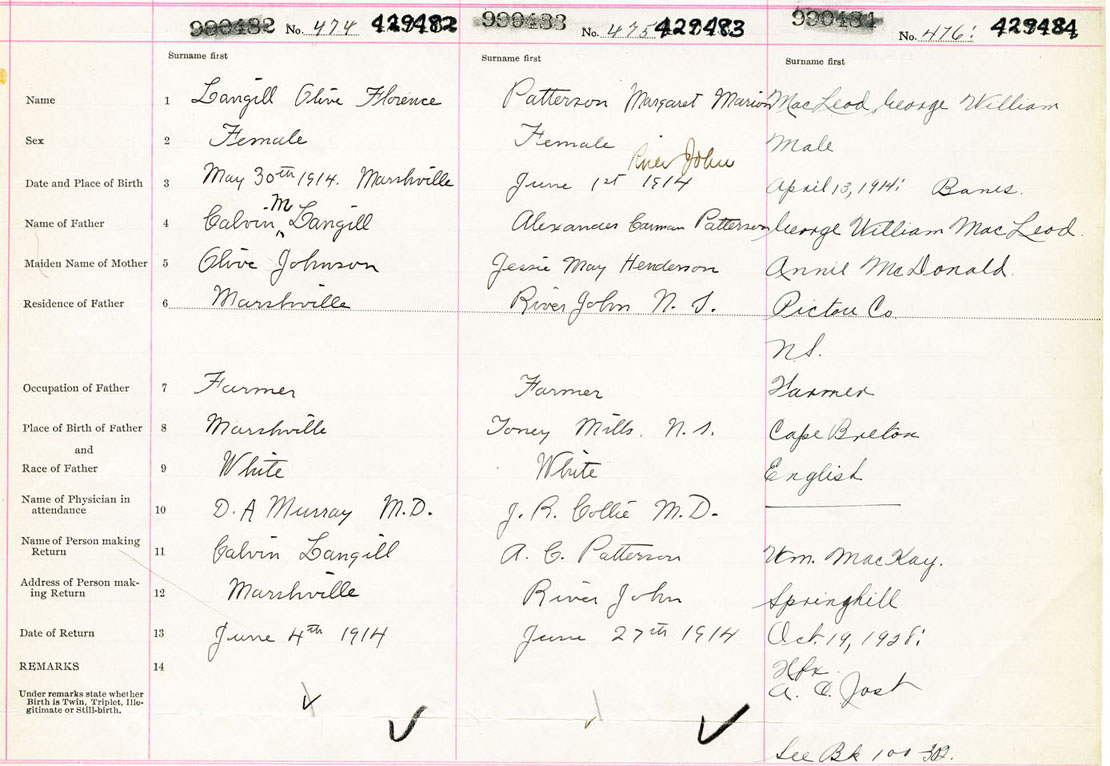 990482 No. 474 429482 990483 No. 475 429483 990484 No. 476 429484
Surname first Surname first Surname first
Name 1 Langill Olive Florence Patterson Margaret Marion MacLeod, George William
Sex 2 Female Female Male
River John
Date and Place of Birth 3 May 30th 1914. Marshville June 1st 1914 April 13, 1914: Banes.
M
Name of Father 4 Calvin Langill Alexander Carman Patterson George William MacLeod.
Maiden Name of Mother 5 Olive Johnson Jessie May Henderson Annie McDonald.
Residence of Father 6 Marshville River John N. S. Pictou Co
N.S.
Occupation of Father 7 Farmer Farmer Farmer
Place of Birth of Father 8 Marshville Toney Mills. N.S. Cape Breton
and
Race of Father 9 White White English
Name of Physician in
attendance 10 D. A Murray M.D. J. R. Collie M.D.
Name of Person making
Return 11 Calvin Langill A. C. Patterson Wm. MacKay.
Address of Person mak-
ing Return 12 Marshville River John Springhill
Date of Return 13 June 4th 1914 June 27th 1914 Oct. 19, 1928:
REMARKS 14 Hfx
A. C. Jost
Under remarks state whether
Birth is Twin, Triplet, Ille-
gitimate or Still-birth.
See Bk 100